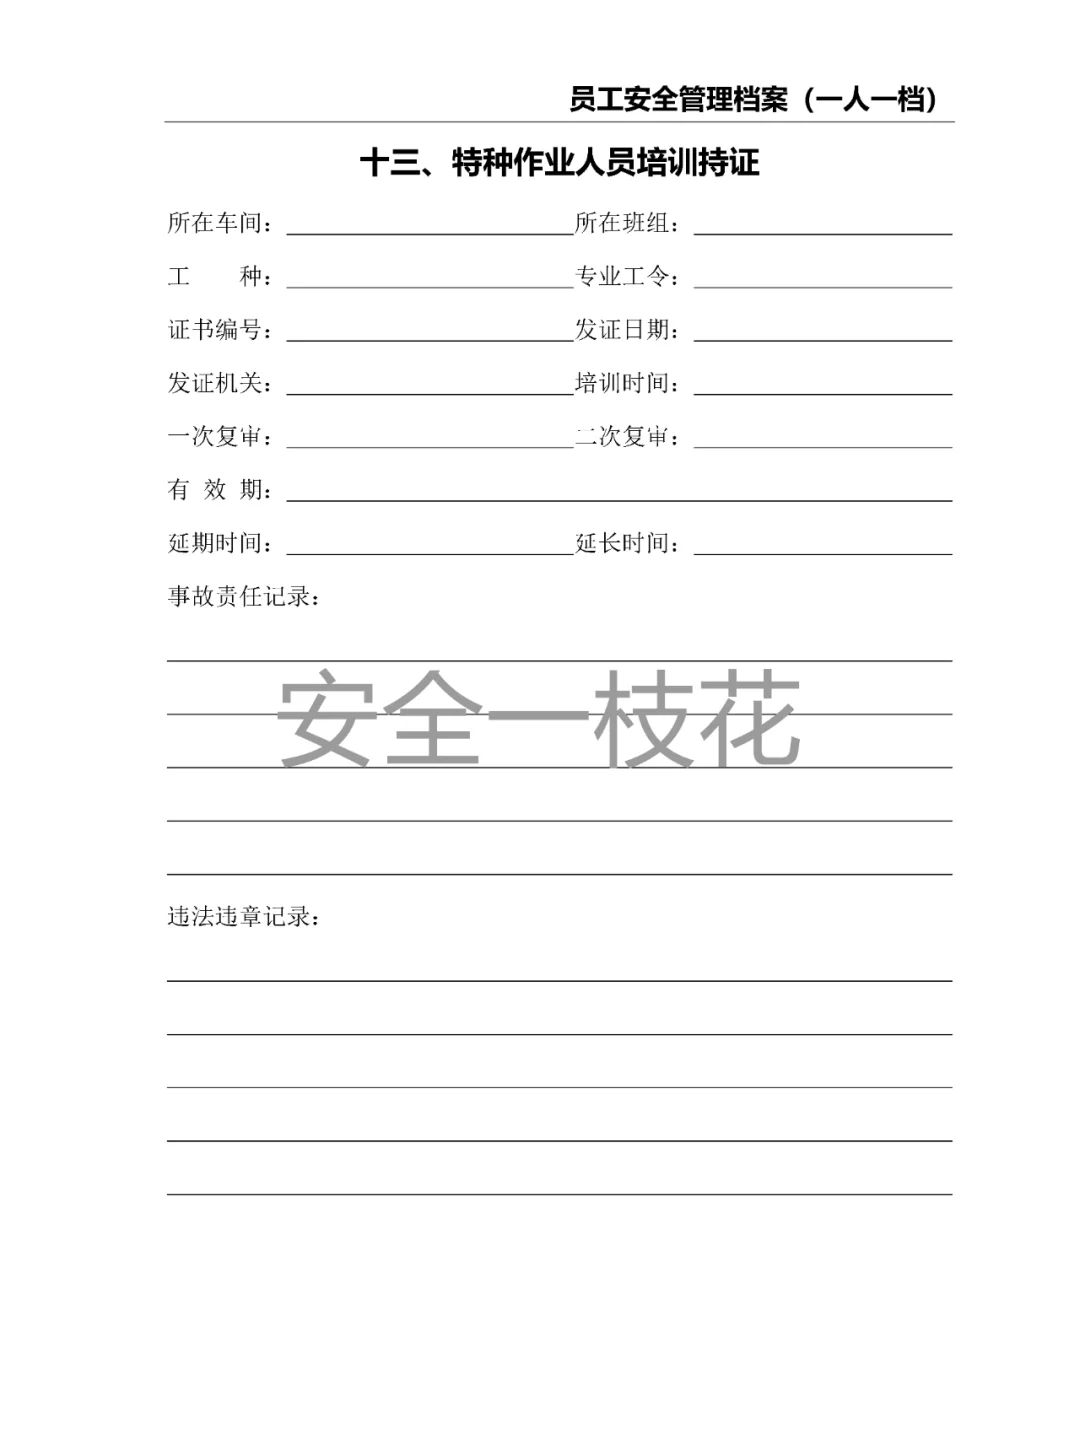 员工安全管理档案（一人一档）
十三、特种作业人员培训持证
所在车间：　所在班组：
工　　种：　专业工令：
证书编号：　发证日期：
发证机关：　培训时间：
一次复审：　二次复审：
有 效 期：
延期时间：　延长时间：
事故责任记录：
安全一枝花
违法违章记录：